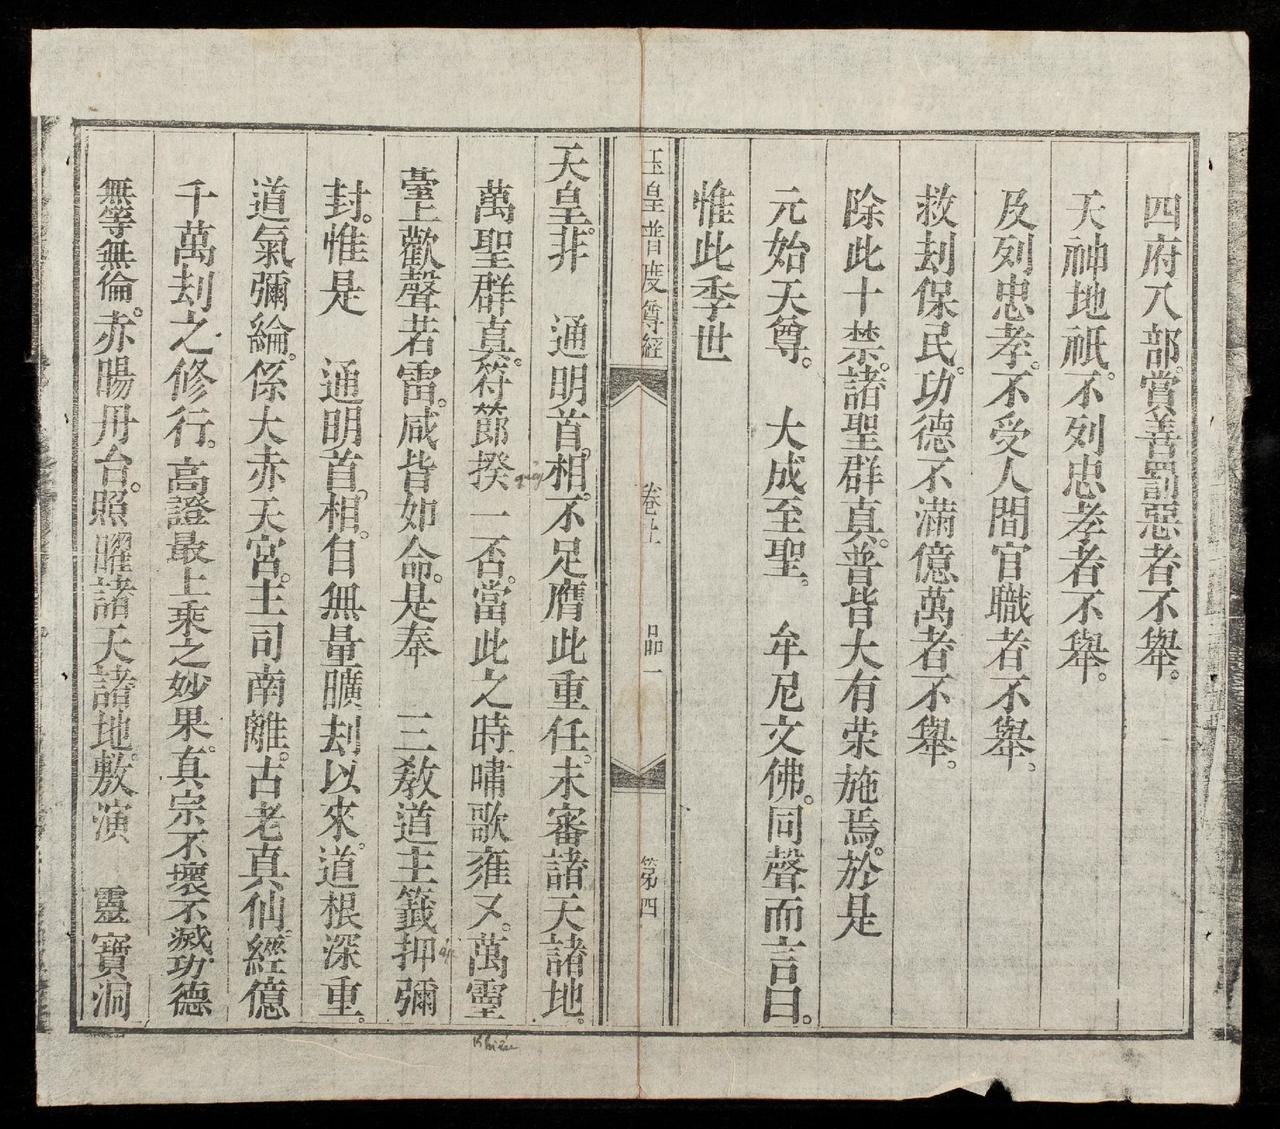 四府八部。賞善罰惡者不舉。
天神地祇。不列忠孝者不舉。
及列忠孝。不受人間官職者不舉。
救刦保民。功德不滿億萬者不舉。
除此十禁。諸聖群真。普皆大有荣施焉。於是
元始天尊。 大成至聖。 牟尼文佛。同聲而言曰。
惟此季世
玉皇普度尊經 卷上 品一 第四
天皇。非 通明首相。不足膺此重任。未審諸天諸地。
萬聖群真。符節揆一否。當此之時。嘯歌雍又。萬靈
臺上歡聲若雷。咸皆如命。是奉 三教道主籙押彌
封。惟是 通明首相。自無量曠刦以來。道根深重。
道氣彌綸。係大赤天宮。主司南離。古老真仙。經億
千萬刦之修行。高證最上乘之妙果。真宗不壞不滅。功德
無等無倫。赤暘丹台。照曜諸天諸地。敷演 靈寶洞
Khiếu